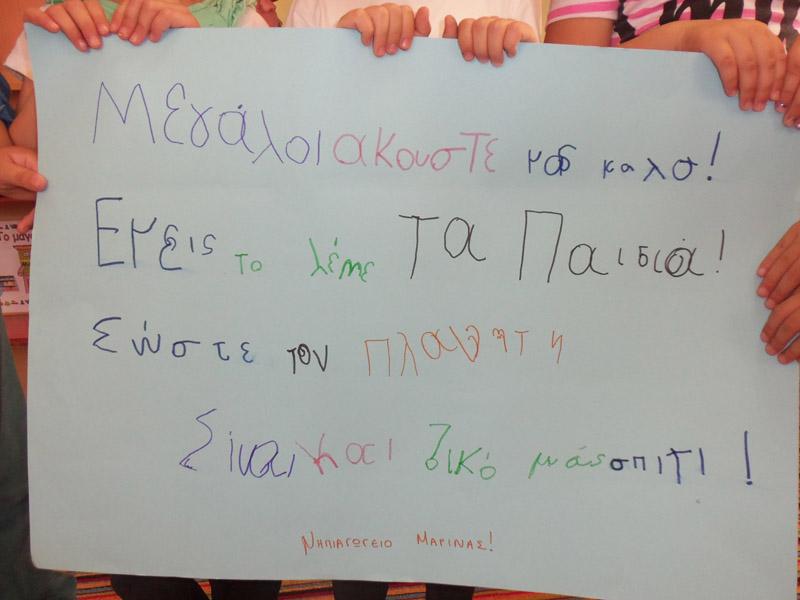 Μεγάλοι ακουστε μας καλα!
Εμεις το λέμε Τα Παιδιά!
Σώστε τον πλανητη
Είναι και δικό μας σπιτι!
Νηπιαγωγειο Μαρινας!
Το μαγ